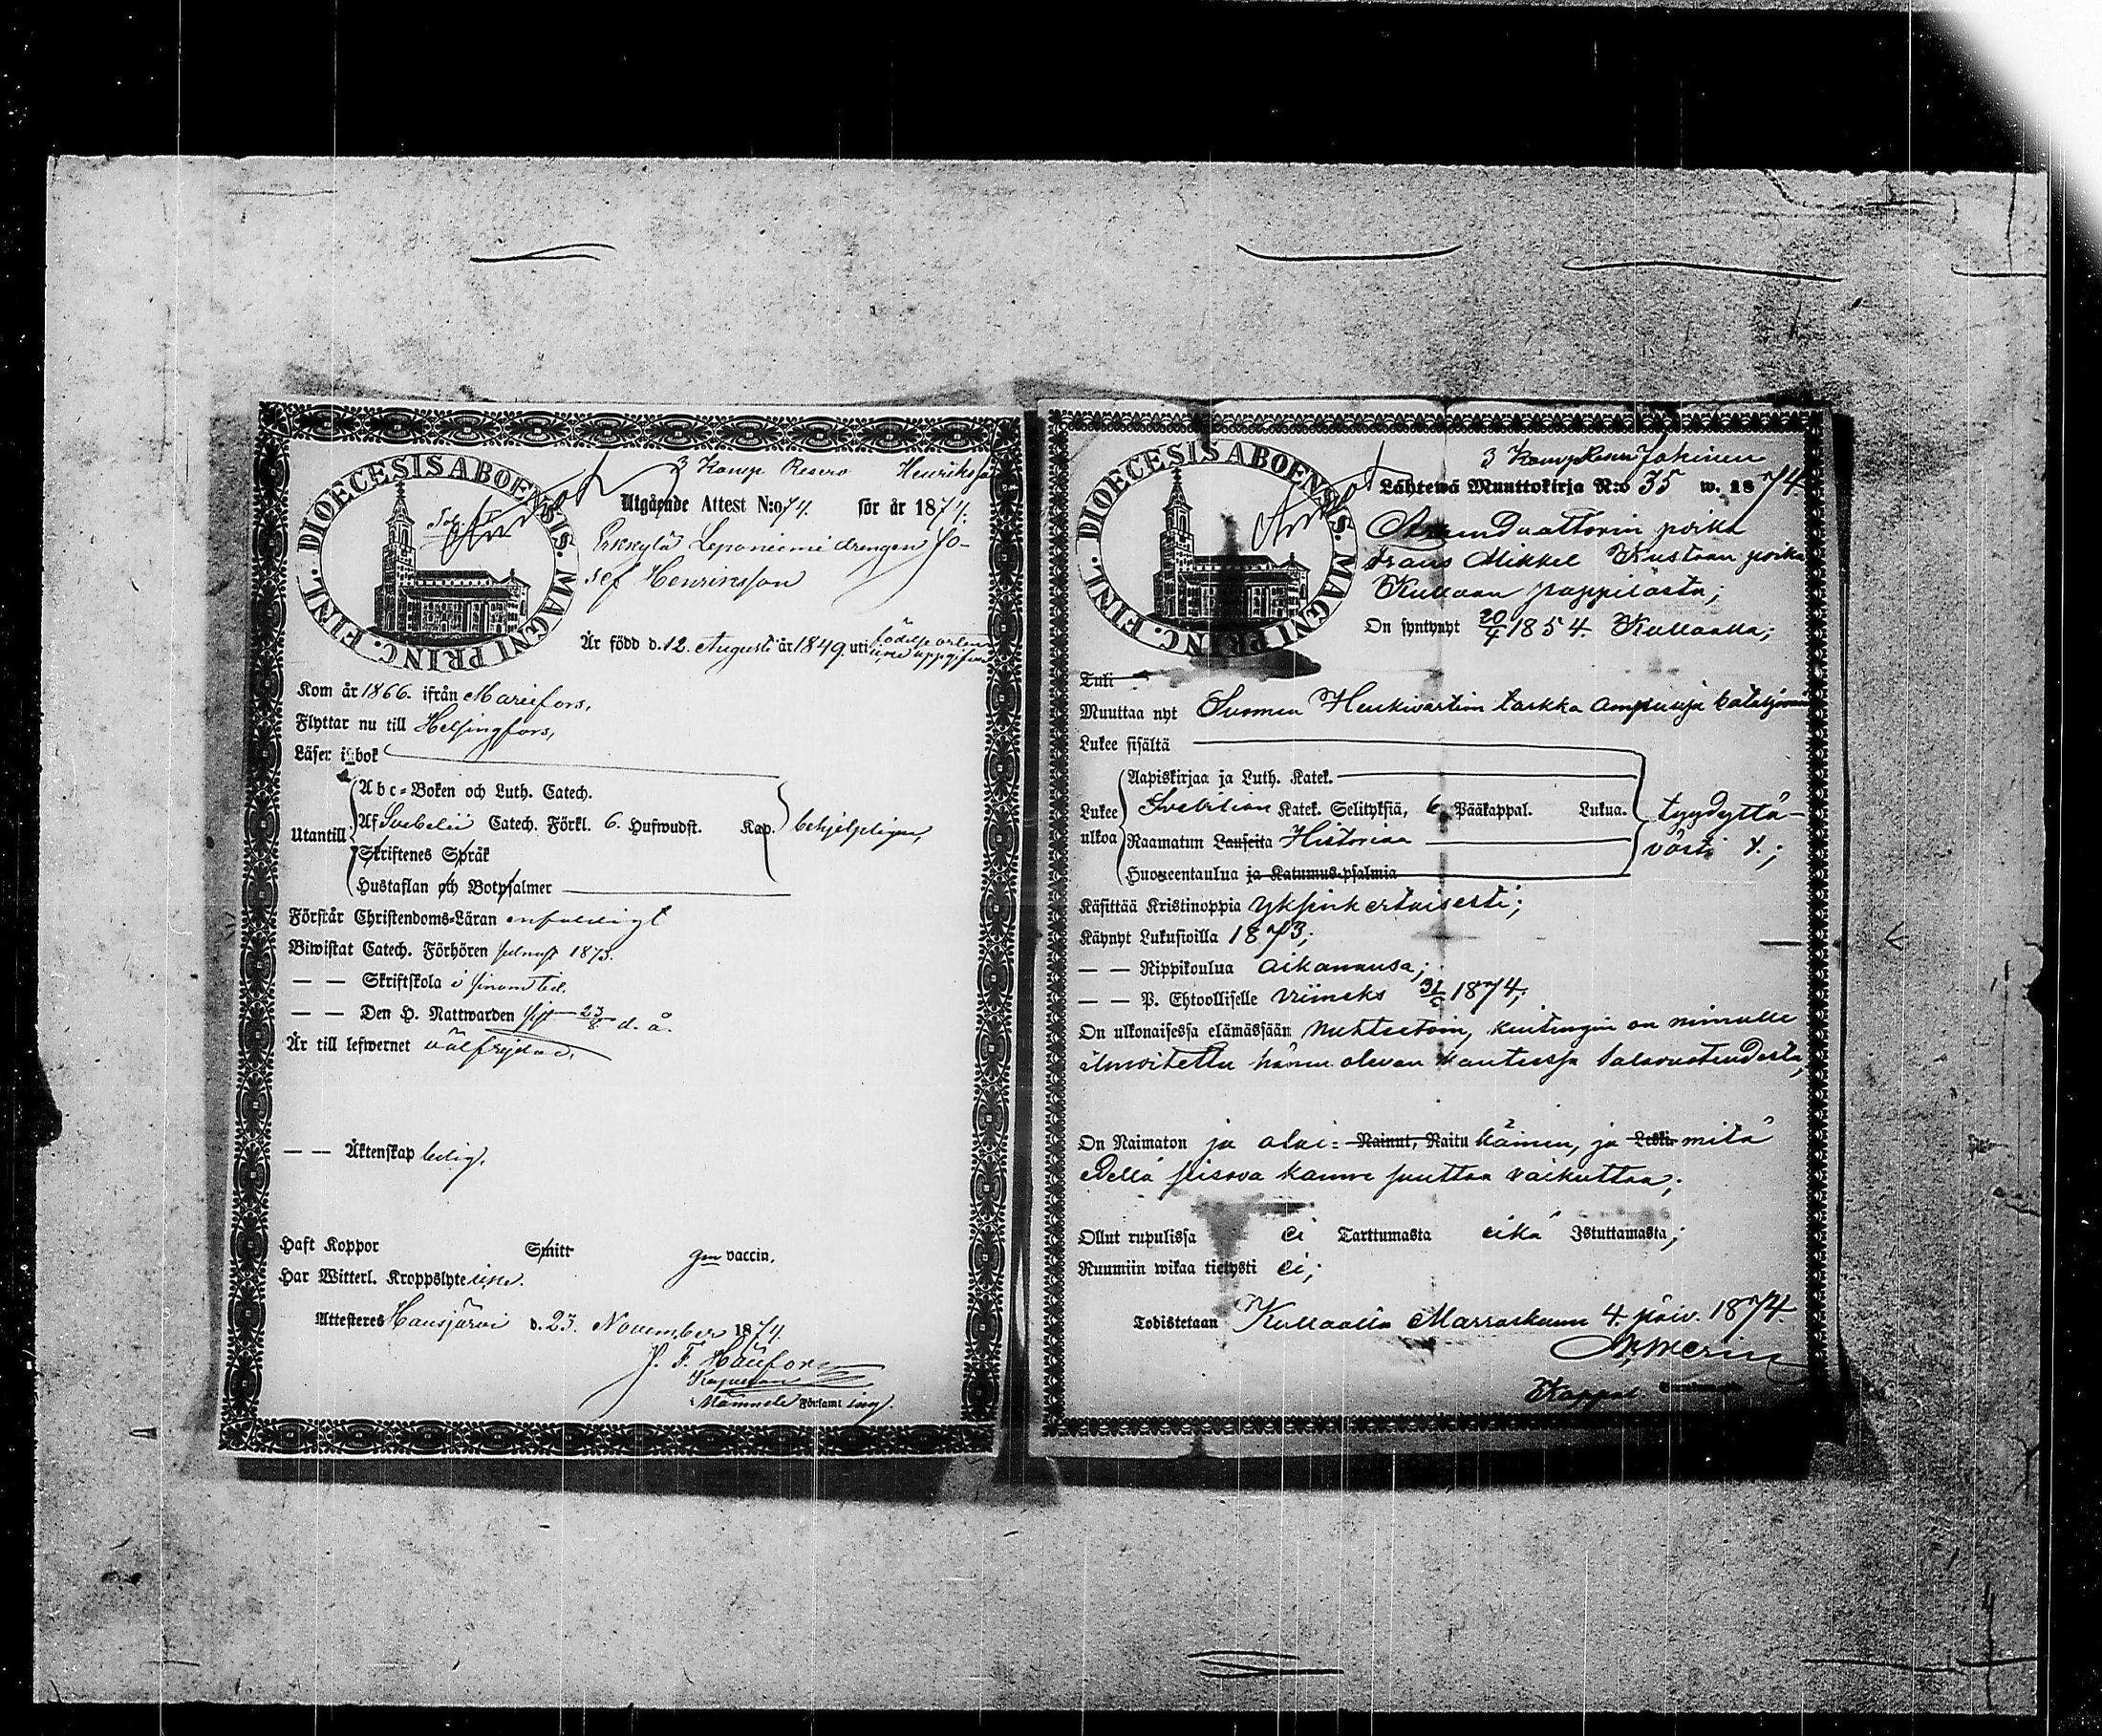 DIOECESIS ABOENSIS. MAGNI PRINC. FINL.
3 Komp Reserv Henriksson
Utgående Attest N:o 74. för år 1874.
Erkkylä Leponiemi drengen Jo-
sef Henriksson
Är född d. 12. Augusti år 1849. uti födelseorten
icke uppgifven
Kom år 1866. ifrån Mariefors,
Flyttar nu till Helsingfors,
Läser i bok
Abc-Boken och Luth. Catech.
Utantill Af Svebelii Catech. Förkl. 6. Hufwudst. Kap. behjelpligen,
Skriftenes Språk
Hustaflan och Botpsalmer
Förstår Christendoms-Läran enfaldigt
Biwistat Catech. Förhören senast 1873.
— — Skriftskola i sinom tid.
— — Den H. Nattwarden sist 23/8 d. å.
Är till lefwernet välfrejdad,
— — Äktenskap ledig,
Haft Koppor Smitt gm vaccin.
Har Witterl. Kroppslyte
Attesteres Hausjärvi d. 23. November 1874.
J. F.
Kapellan
i Församling.
DIOECESIS ABOENSIS. MAGNI PRINC. FINL.
3 Komp Johinen
Lähtewä Muuttokirja N:o 35 w. 1874.
Arenduattorin poika
Frans Mikkel Kustaan poika
Kullaan pappilasta;
On syntynyt 20/4 1854. Kullaalla;
Tuli
Muuttaa nyt Suomen Henkivartion tarkka ampuuja
Lukee sisältä
Aapiskirjaa ja Luth. Katek.
Lukee ulkoa Svebilion Katek. Selityksiä, 6 Pääkappal. Lukua. tyydyttä-
Raamatun Lauseita Historiaa västi
Huoneentaulua ja Katumus-psalmia
Käsittää Kristinoppia yksinkertaisesti;
Käynyt Lukusioilla 1873;
— — Rippikoulua aikanansa;
— — P. Ehtoolliselle viimeks 1874;
On ulkonaisessa elämässään nuhteetoin, kuitengin on minulle
ilmoitettu hänen olevan salavuoteudesta,
On Naimaton ja Nainut, Naitu hänen, ja Leski mitä
edellä seisova kanne saattaa vaikuttaa;
Ollut rupulissa ei Tarttumasta eikä Istuttamasta;
Ruumiin wikaa tietysti ei;
Todistetaan Kullaalla Marraskuun 4. päiv. 1874.
Kappal.